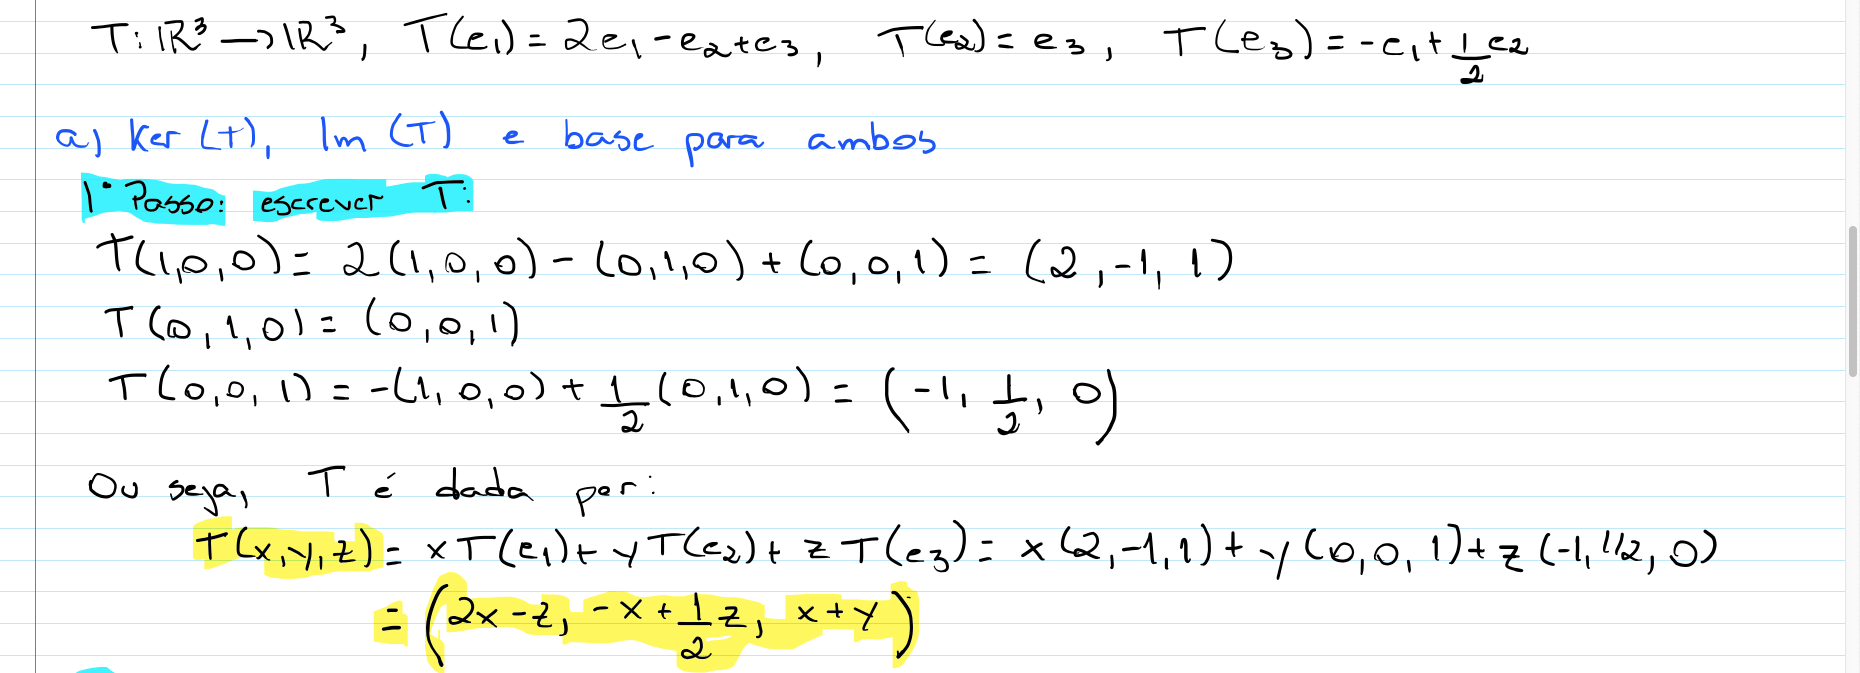 T: ℝ³ → ℝ³, T(e₁) = 2e₁ - e₂ + e₃, T(e₂) = e₃, T(e₃) = -e₁ + 1/2 e₂
a) Ker (T), Im (T) e base para ambos
1° Passo: escrever T:
T(1,0,0) = 2(1,0,0) - (0,1,0) + (0,0,1) = (2,-1,1)
T(0,1,0) = (0,0,1)
T(0,0,1) = -(1,0,0) + 1/2 (0,1,0) = (-1, 1/2, 0)
Ou seja, T é dada por:
T(x,y,z) = xT(e₁) + yT(e₂) + zT(e₃) = x(2,-1,1) + y(0,0,1) + z(-1,1/2,0)
= (2x-z, -x + 1/2 z, x+y)